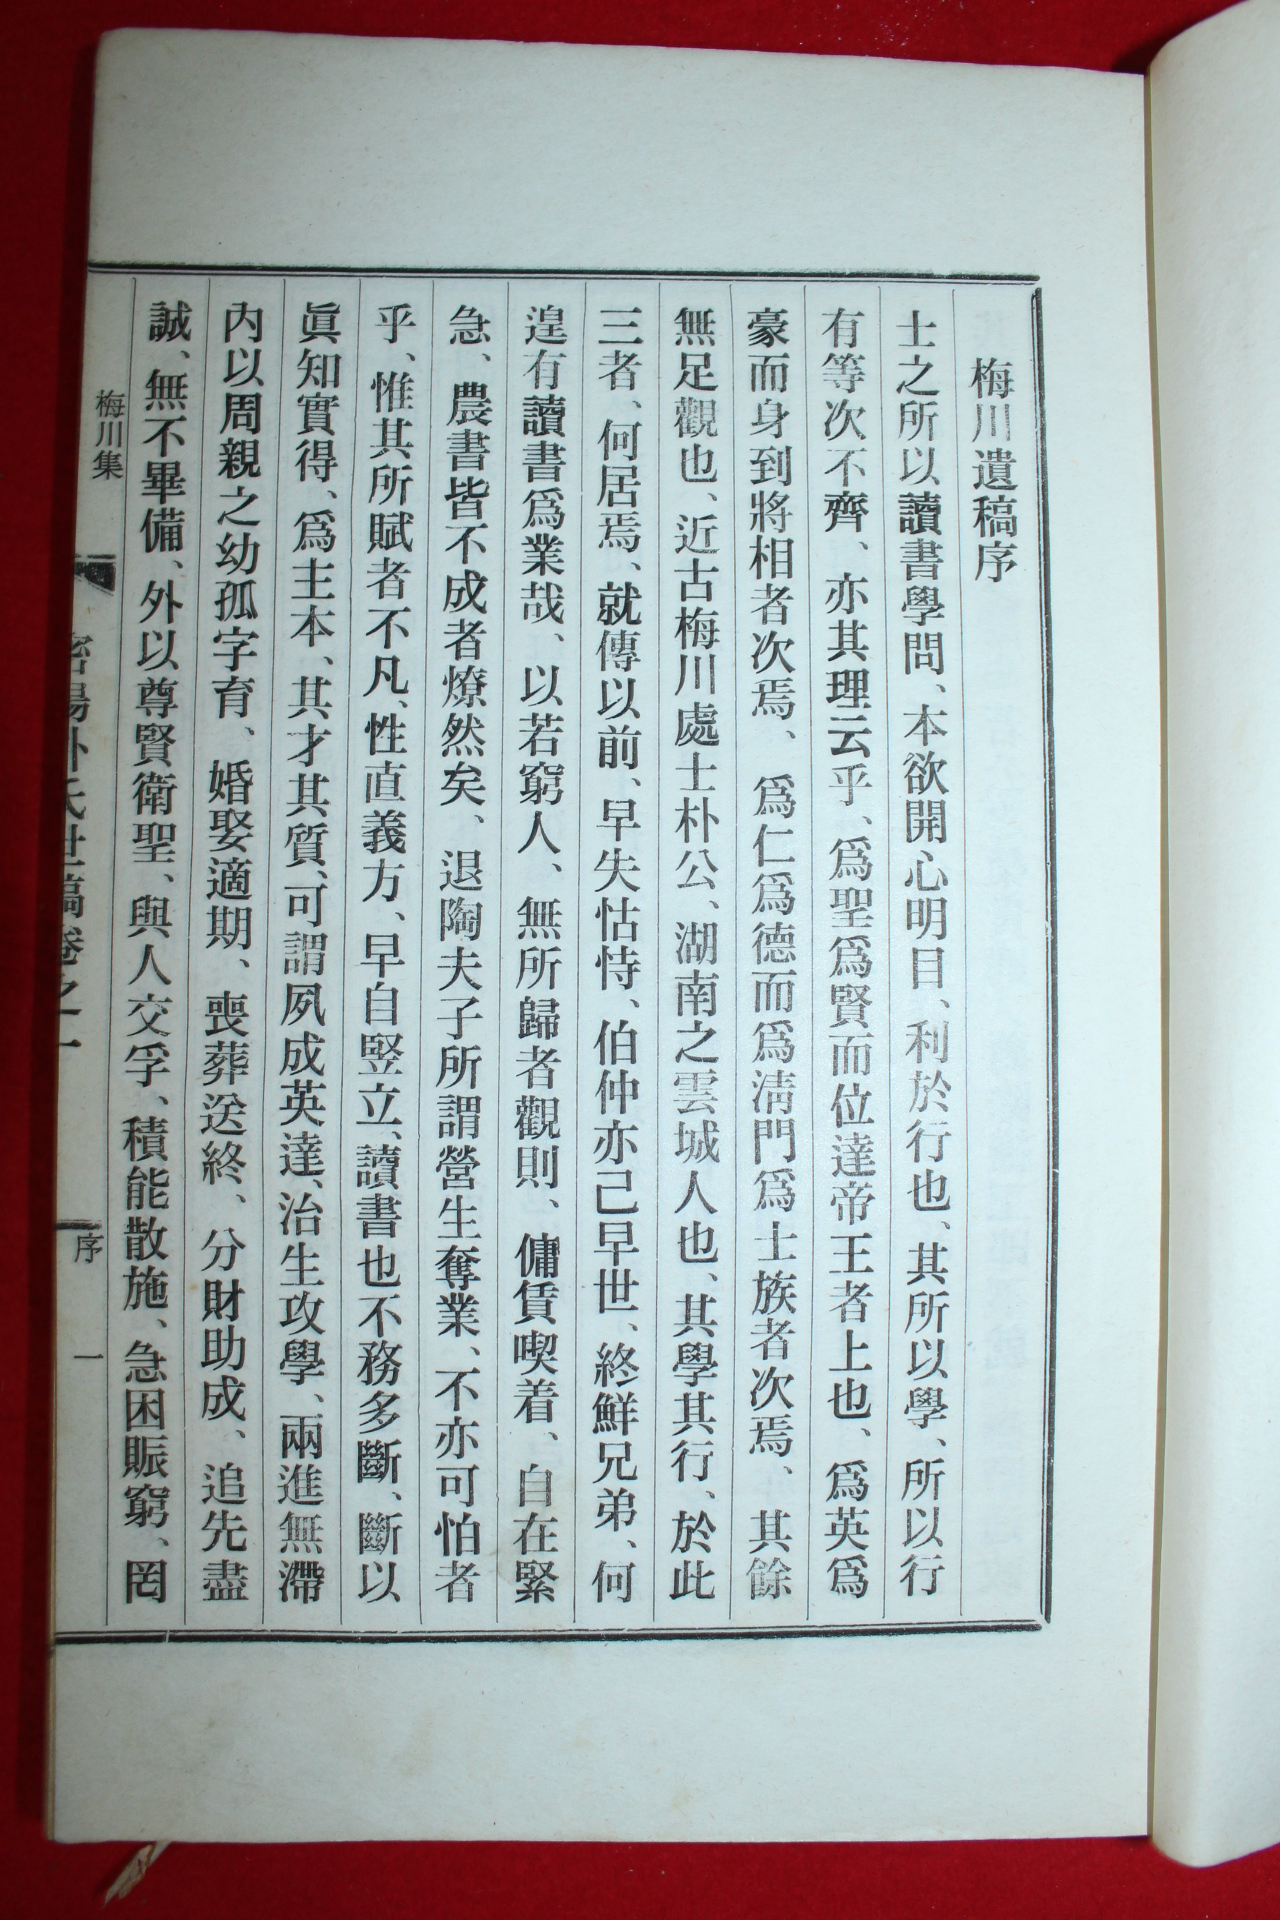 梅川遺稿序
士之所以讀書學問、本欲開心明目、利於行也、其所以學、所以行
有等次不齊、亦其理云乎、爲聖爲賢而位達帝王者上也、爲英爲
豪而身到將相者次焉、爲仁爲德而爲淸門爲士族者次焉、其餘
無足觀也、近古梅川處士朴公、湖南之雲城人也、其學其行、於此
三者、何居焉、就傳以前、早失怙恃、伯仲亦己早世、終鮮兄弟、何
遑有讀書爲業哉、以若窮人、無所歸者觀則、傭賃喫着、自在緊
急、農書皆不成者燎然矣、退陶夫子所謂營生奪業、不亦可怕者
乎、惟其所賦者不凡、性直義方、早自竪立、讀書也不務多斷、斷以
眞知實得、爲主本、其才其質、可謂夙成英達、治生攻學、兩進無滯
內以周親之幼孤字育、婚娶適期、喪葬送終、分財助成、追先盡
誠、無不畢備、外以尊賢衛聖、與人交孚、積能散施、急困賑窮、罔
梅川集
密陽朴氏世稿卷之一
序
一